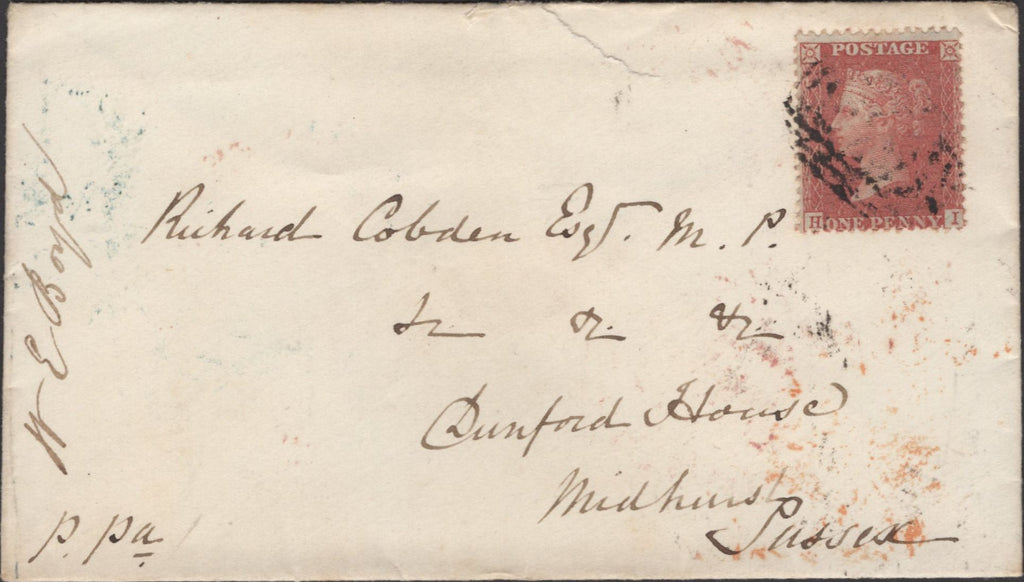 POSTAGE
H ONE PENNY I
Richard Cobden Esqr. M. P.
&c &c &c
Dunford House
Midhurst
Sussex
p. pd
W E Boyd